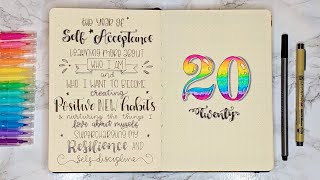 the YEAR OF
Self Acceptance
LEARNING MORE ABOUT
WHO I AM
and
WHO I WANT TO BECOME
creating
Positive NEW habits
& NURTURING THE THINGS I
love about myself
SUPERCHARGING MY
Resilience AND
self-discipline
20
twenty